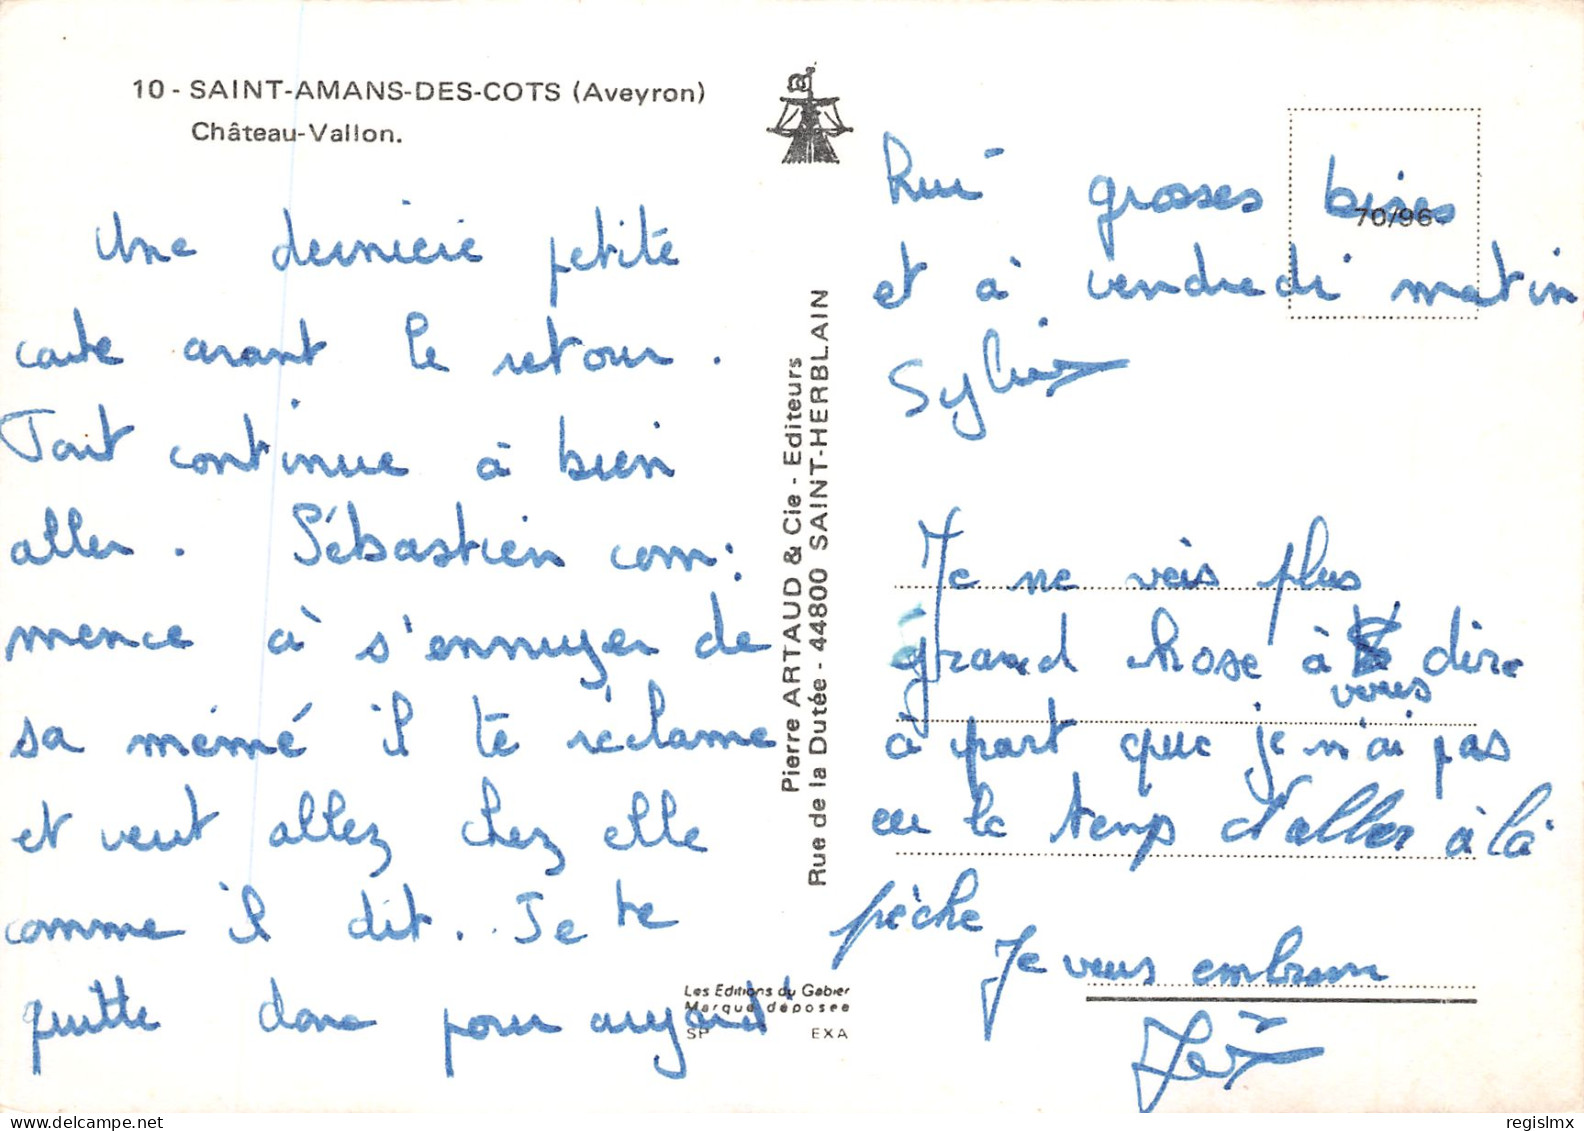 10 - SAINT-AMANS-DES-COTS (Aveyron)
Château-Vallon.
Une dernière petite
carte avant le retour.
Tout continue à bien
aller. Sébastien com:
mence à s'ennuyer de
sa mémé il te réclame
et veut allez chez elle
comme il dit. Je te
quitte donc pour aujourd'
hui grosses bises
et à vendredi matin
Sylvie
Je ne vois plus
grand chose à dire
vous
à part que je n'ai pas
eu le temps d'aller à la
pèche
Je vous embrasse
Pierre ARTAUD & Cie - Editeurs
Rue de la Dutée - 44800 SAINT-HERBLAIN
Les Editions du Gabier
Marque déposée
SP EXA
70/96
regislmx